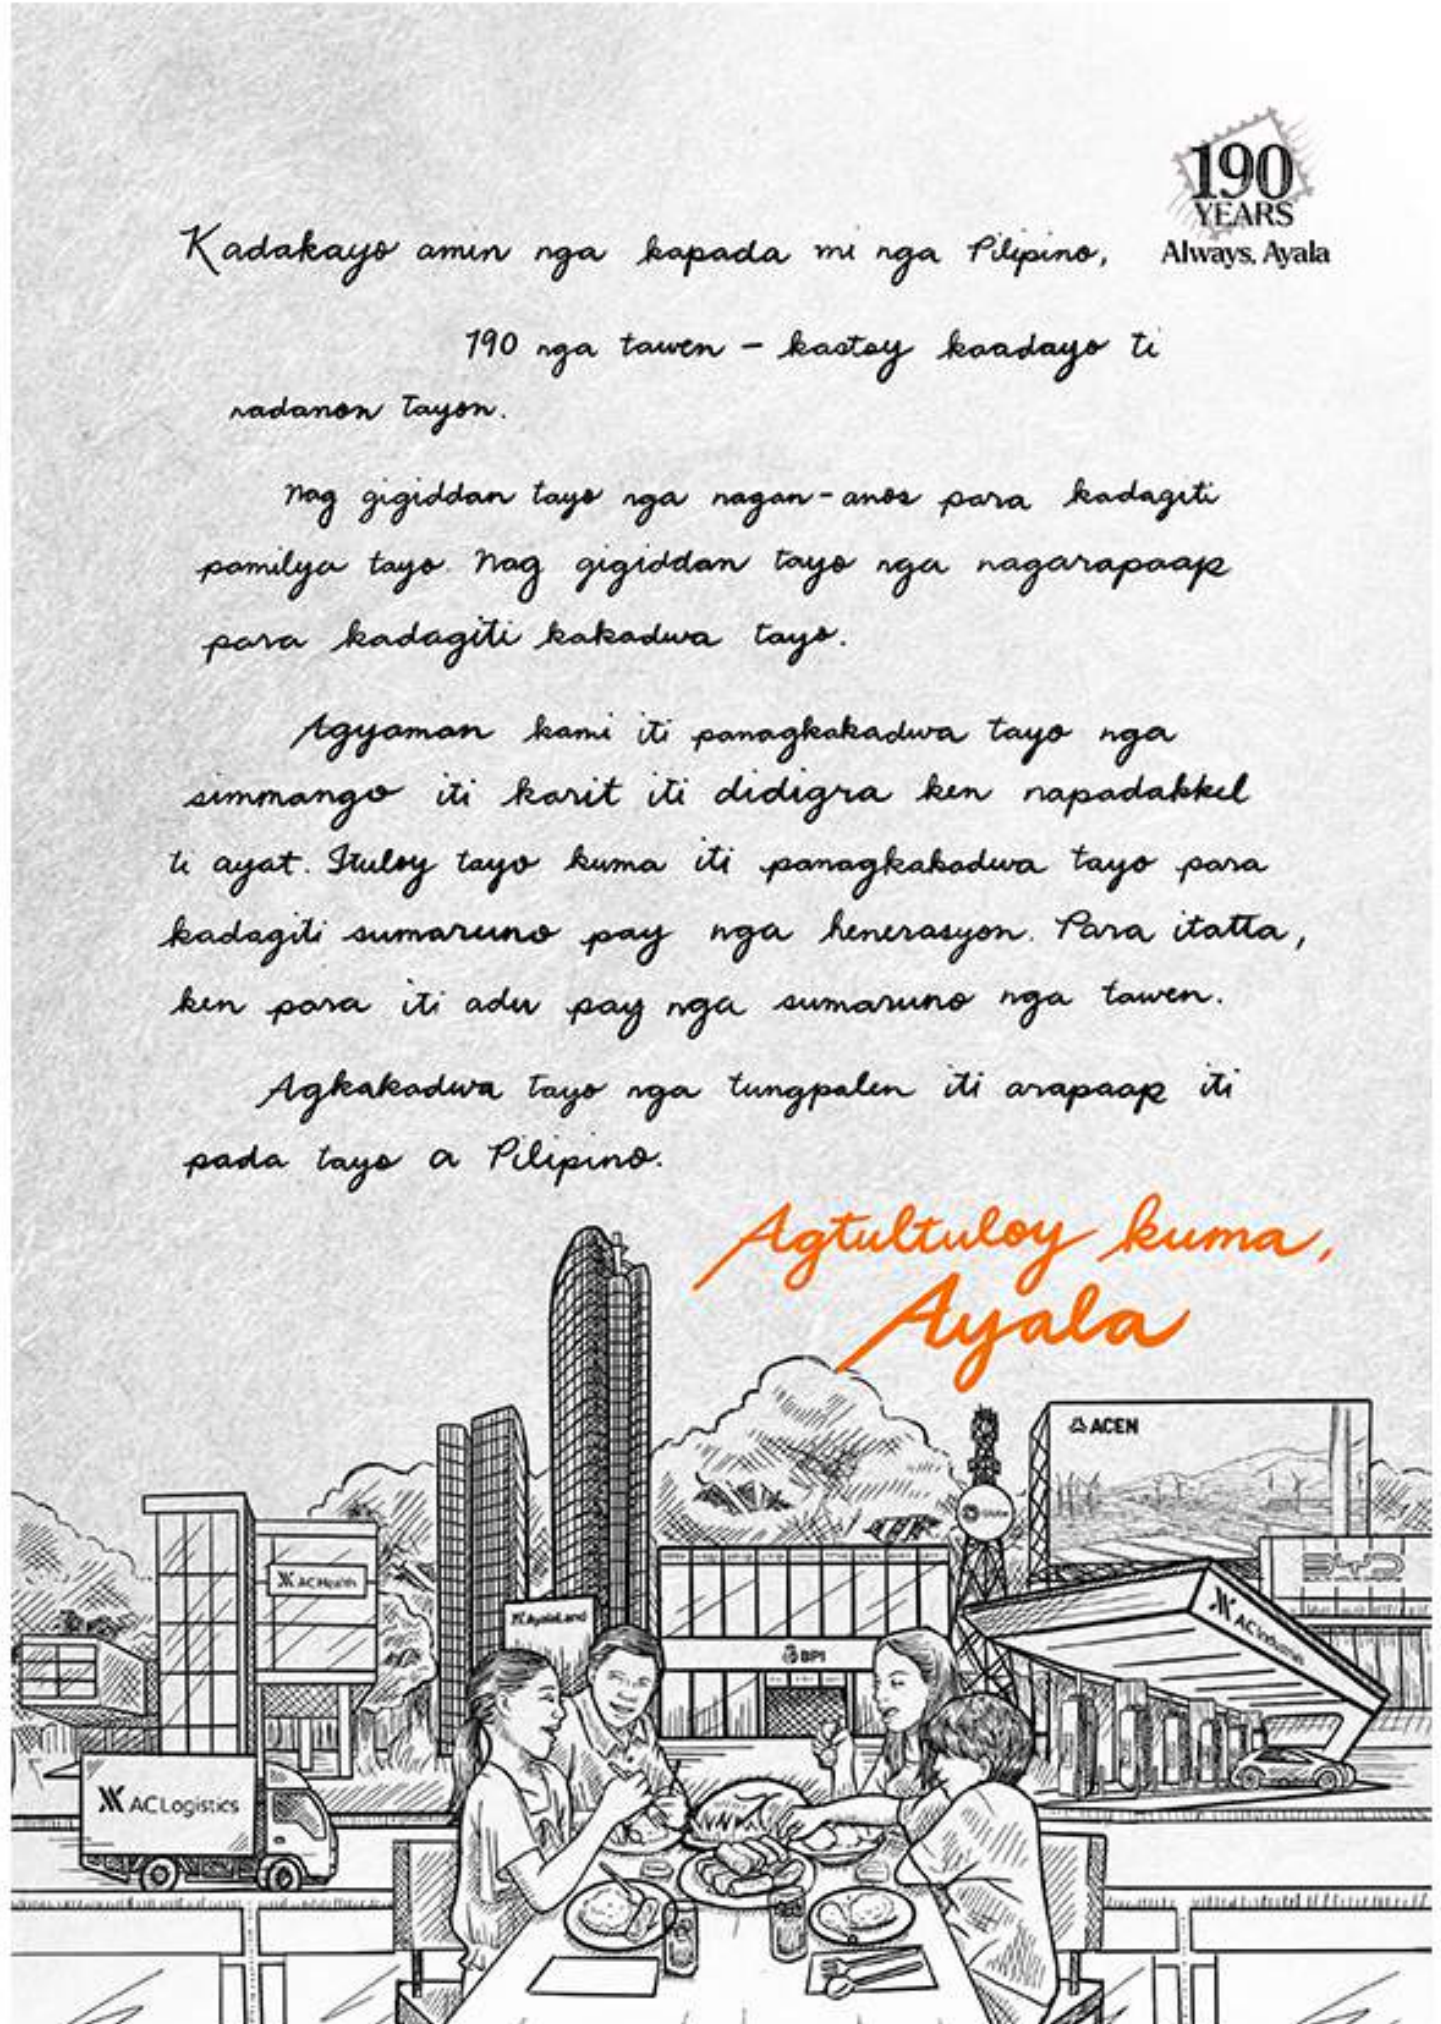 190
YEARS
Always, Ayala
Kadakayo amin nga kapada mi nga Pilipino,
190 nga tawen – kastoy kaadayo ti
nadanon tayon.
Nag gigiddan tayo nga nagan-anos para kadagiti
pamilya tayo. Nag gigiddan tayo nga nagarapaap
para kadagiti kakadwa tayo.
Agyaman kami iti panagkakadwa tayo nga
simmango iti karit iti didigra ken napadakkel
ti ayat. Ituloy tayo kuma iti panagkakadwa tayo para
kadagiti sumaruno pay nga henerasyon. Para itatta,
ken para iti adu pay nga sumaruno nga tawen.
Agkakadwa tayo nga tungpalen iti arapaap iti
pada tayo a Pilipino.
Agtultuloy kuma,
Ayala
ACEN
Globe
BYD
AC Health
AyalaLand
BPI
AC Industrials
AC Logistics